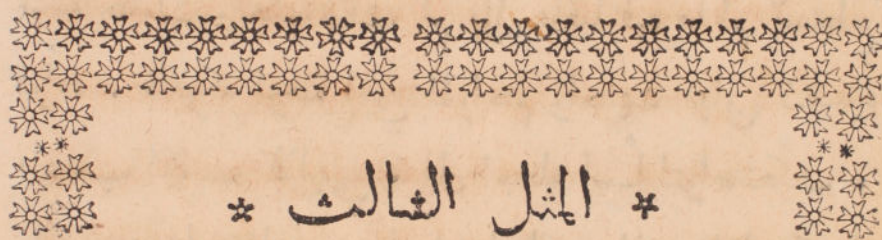 * المثل الثالث *